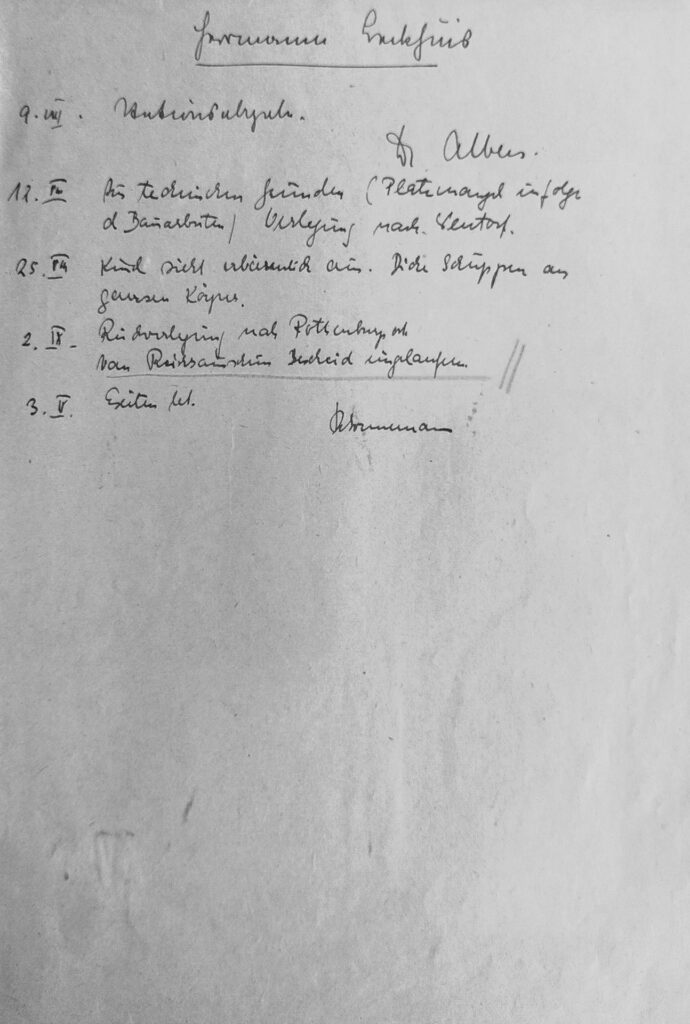 Herrmann Beckhüis
9. VIII. Stationsabgabe.
Dr Albers.
12. VIII Aus technischen Gründen (Platzmangel infolge
d Bauarbeiten) Verlegung nach Wentorf.
25. VIII Kind sieht erbärmlich aus. Dicke Schuppen am
ganzen Körper.
2. IX - Rückverlegung nach Rothenburgsort
Vom Reichsausschuss Bescheid eingelaufen.
3. Exitus let.